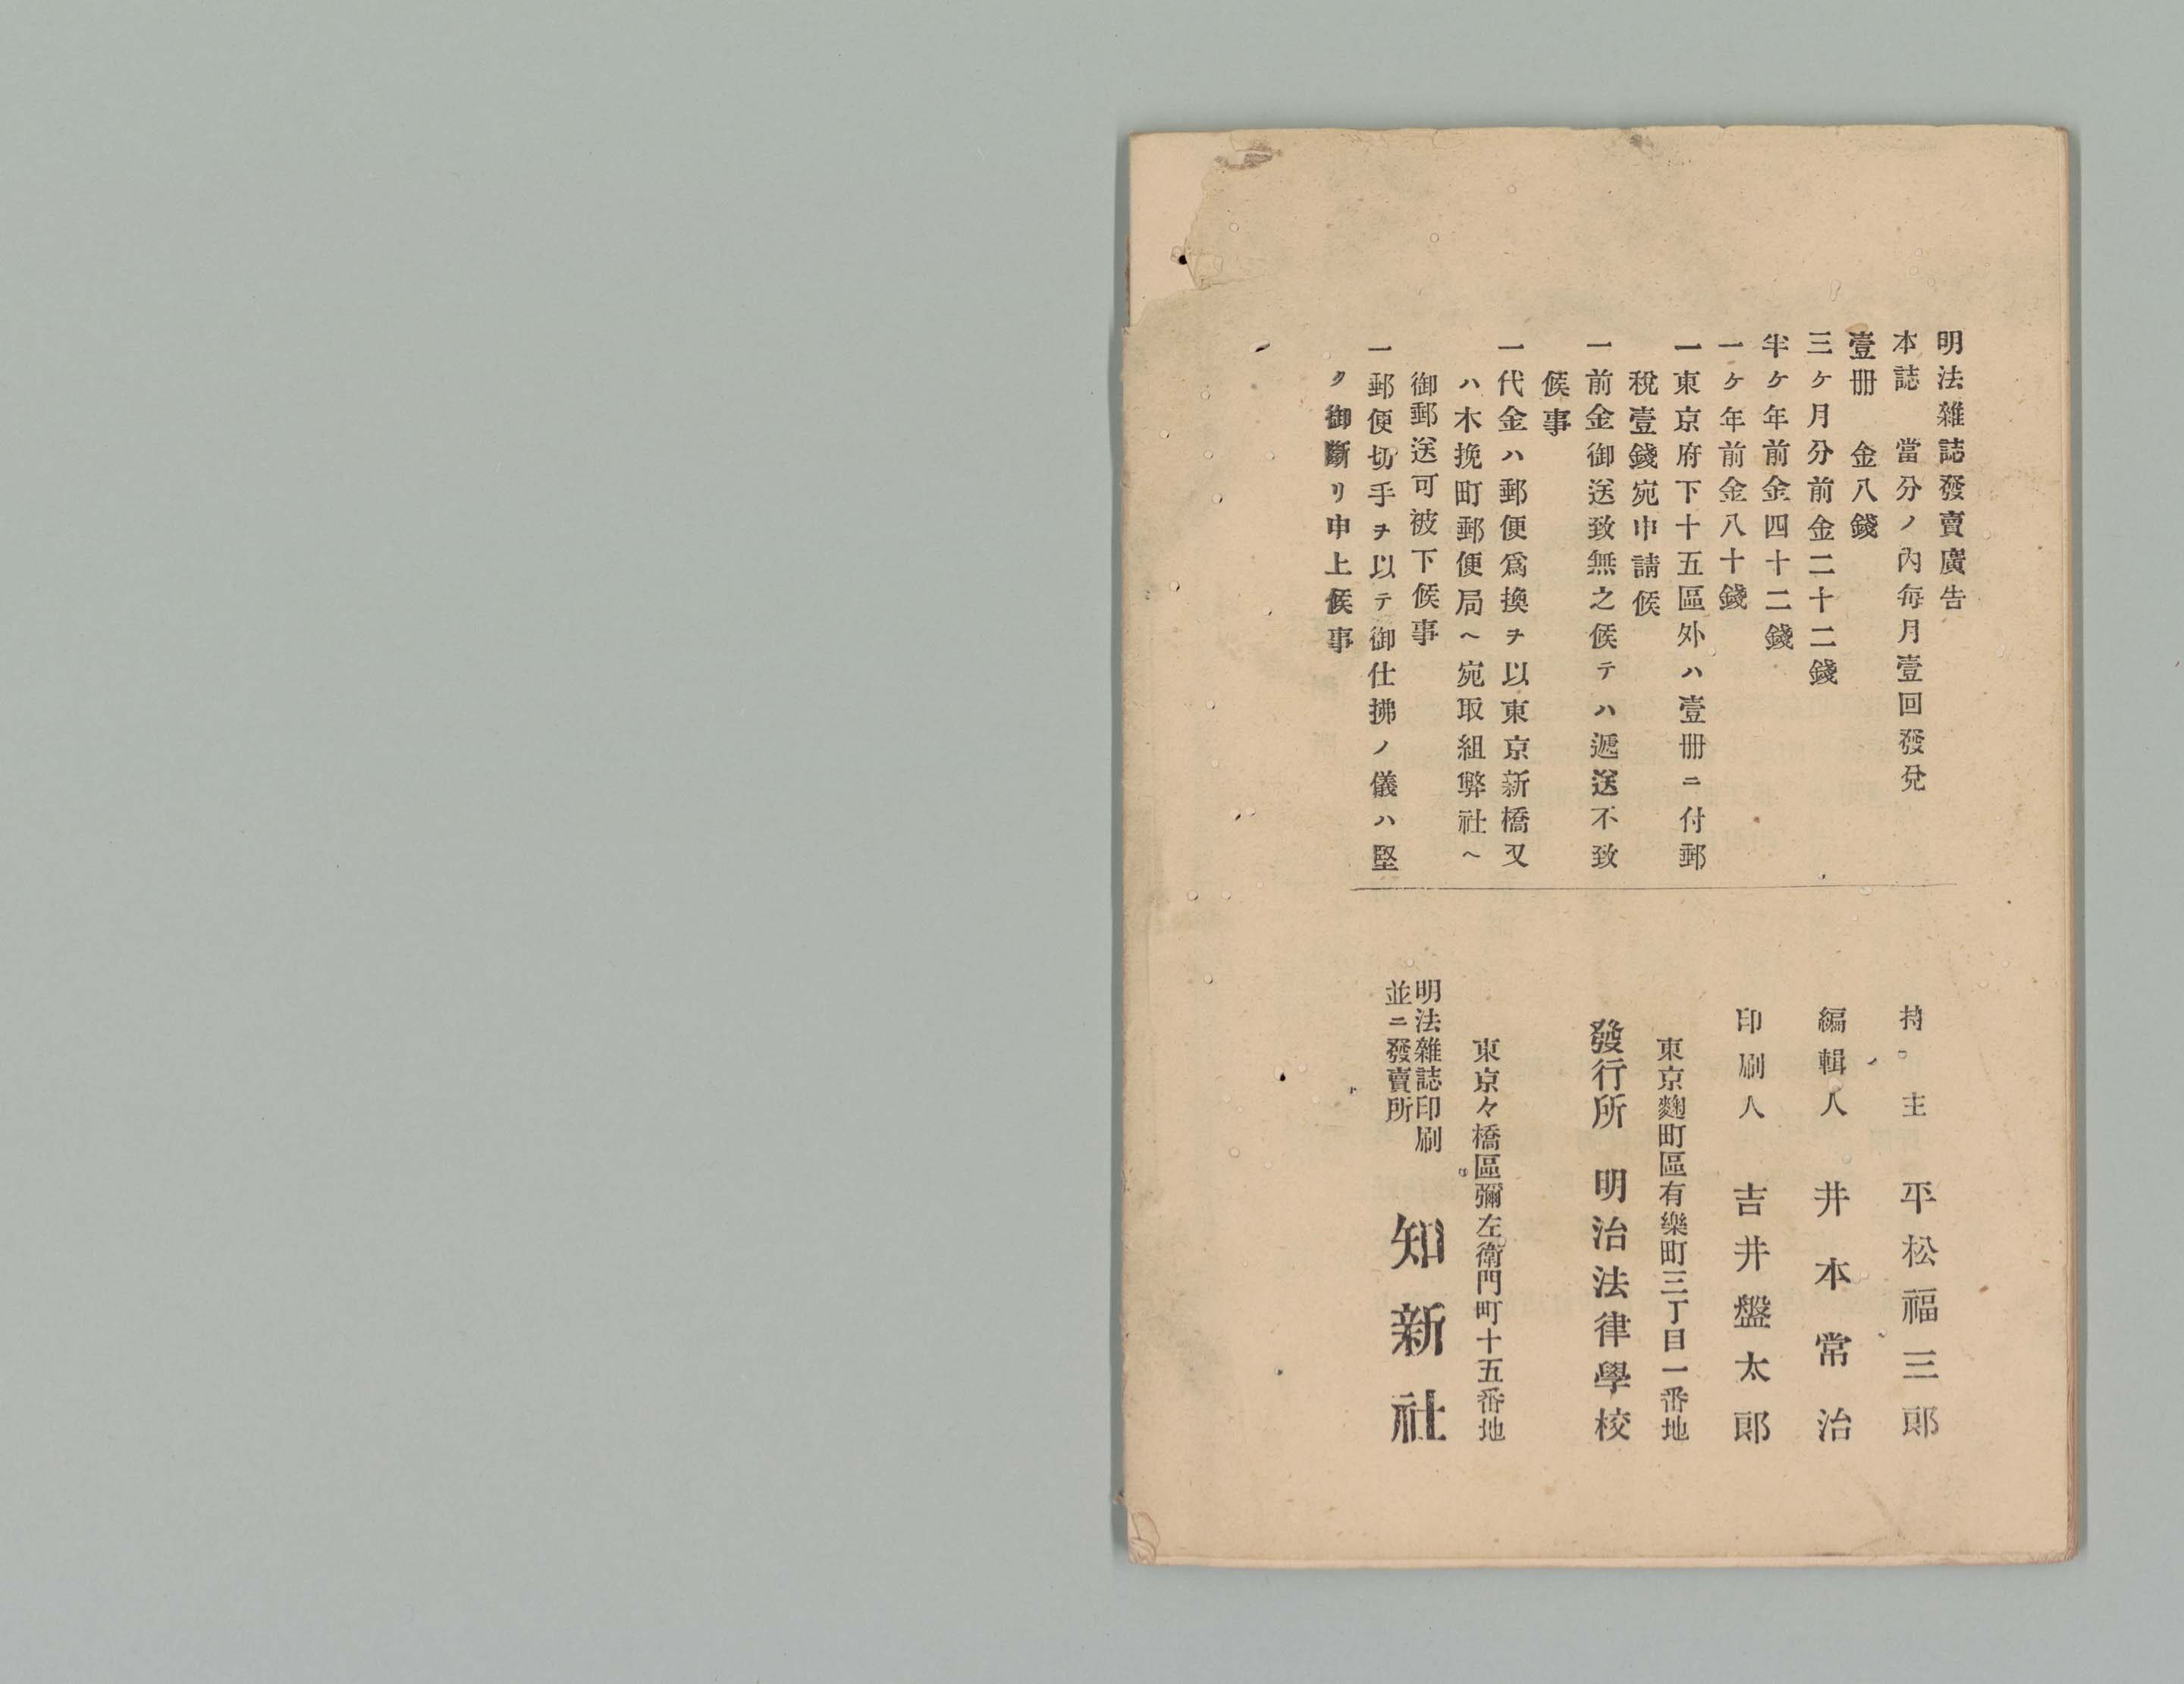 明法雜誌發賣廣告
本誌　當分ノ內每月壹回發兌
壹冊　金八錢
三ヶ月分前金二十二錢
半ヶ年前金四十二錢
一ヶ年前金八十錢
一東京府下十五區外ハ壹冊ニ付郵
稅壹錢宛申請候
一前金御送致無之候テハ遞送不致
候事
一代金ハ郵便爲換ヲ以東京新橋又
ハ木挽町郵便局ヘ宛取組弊社ヘ
御郵送可被下候事
一郵便切手ヲ以テ御仕拂ノ儀ハ堅
ク御斷リ申上候事
持主　平松福三郎
編輯人　井本常治
印刷人　吉井盤太郎
東京麴町區有樂町三丁目一番地
發行所　明治法律學校
東京々橋區彌左衛門町十五番地
明法雜誌印刷
並ニ發賣所
知新社